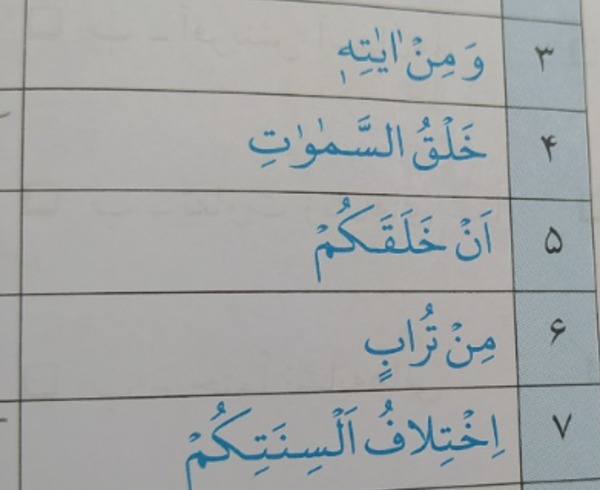 ۳ وَ مِنْ ءایٰتِهٖ
۴ خَلْقُ السَّمٰوٰتِ
۵ اَنْ خَلَقَكُمْ
۶ مِنْ تُرابٍ
۷ اِخْتِلافُ اَلْسِنَتِكُمْ